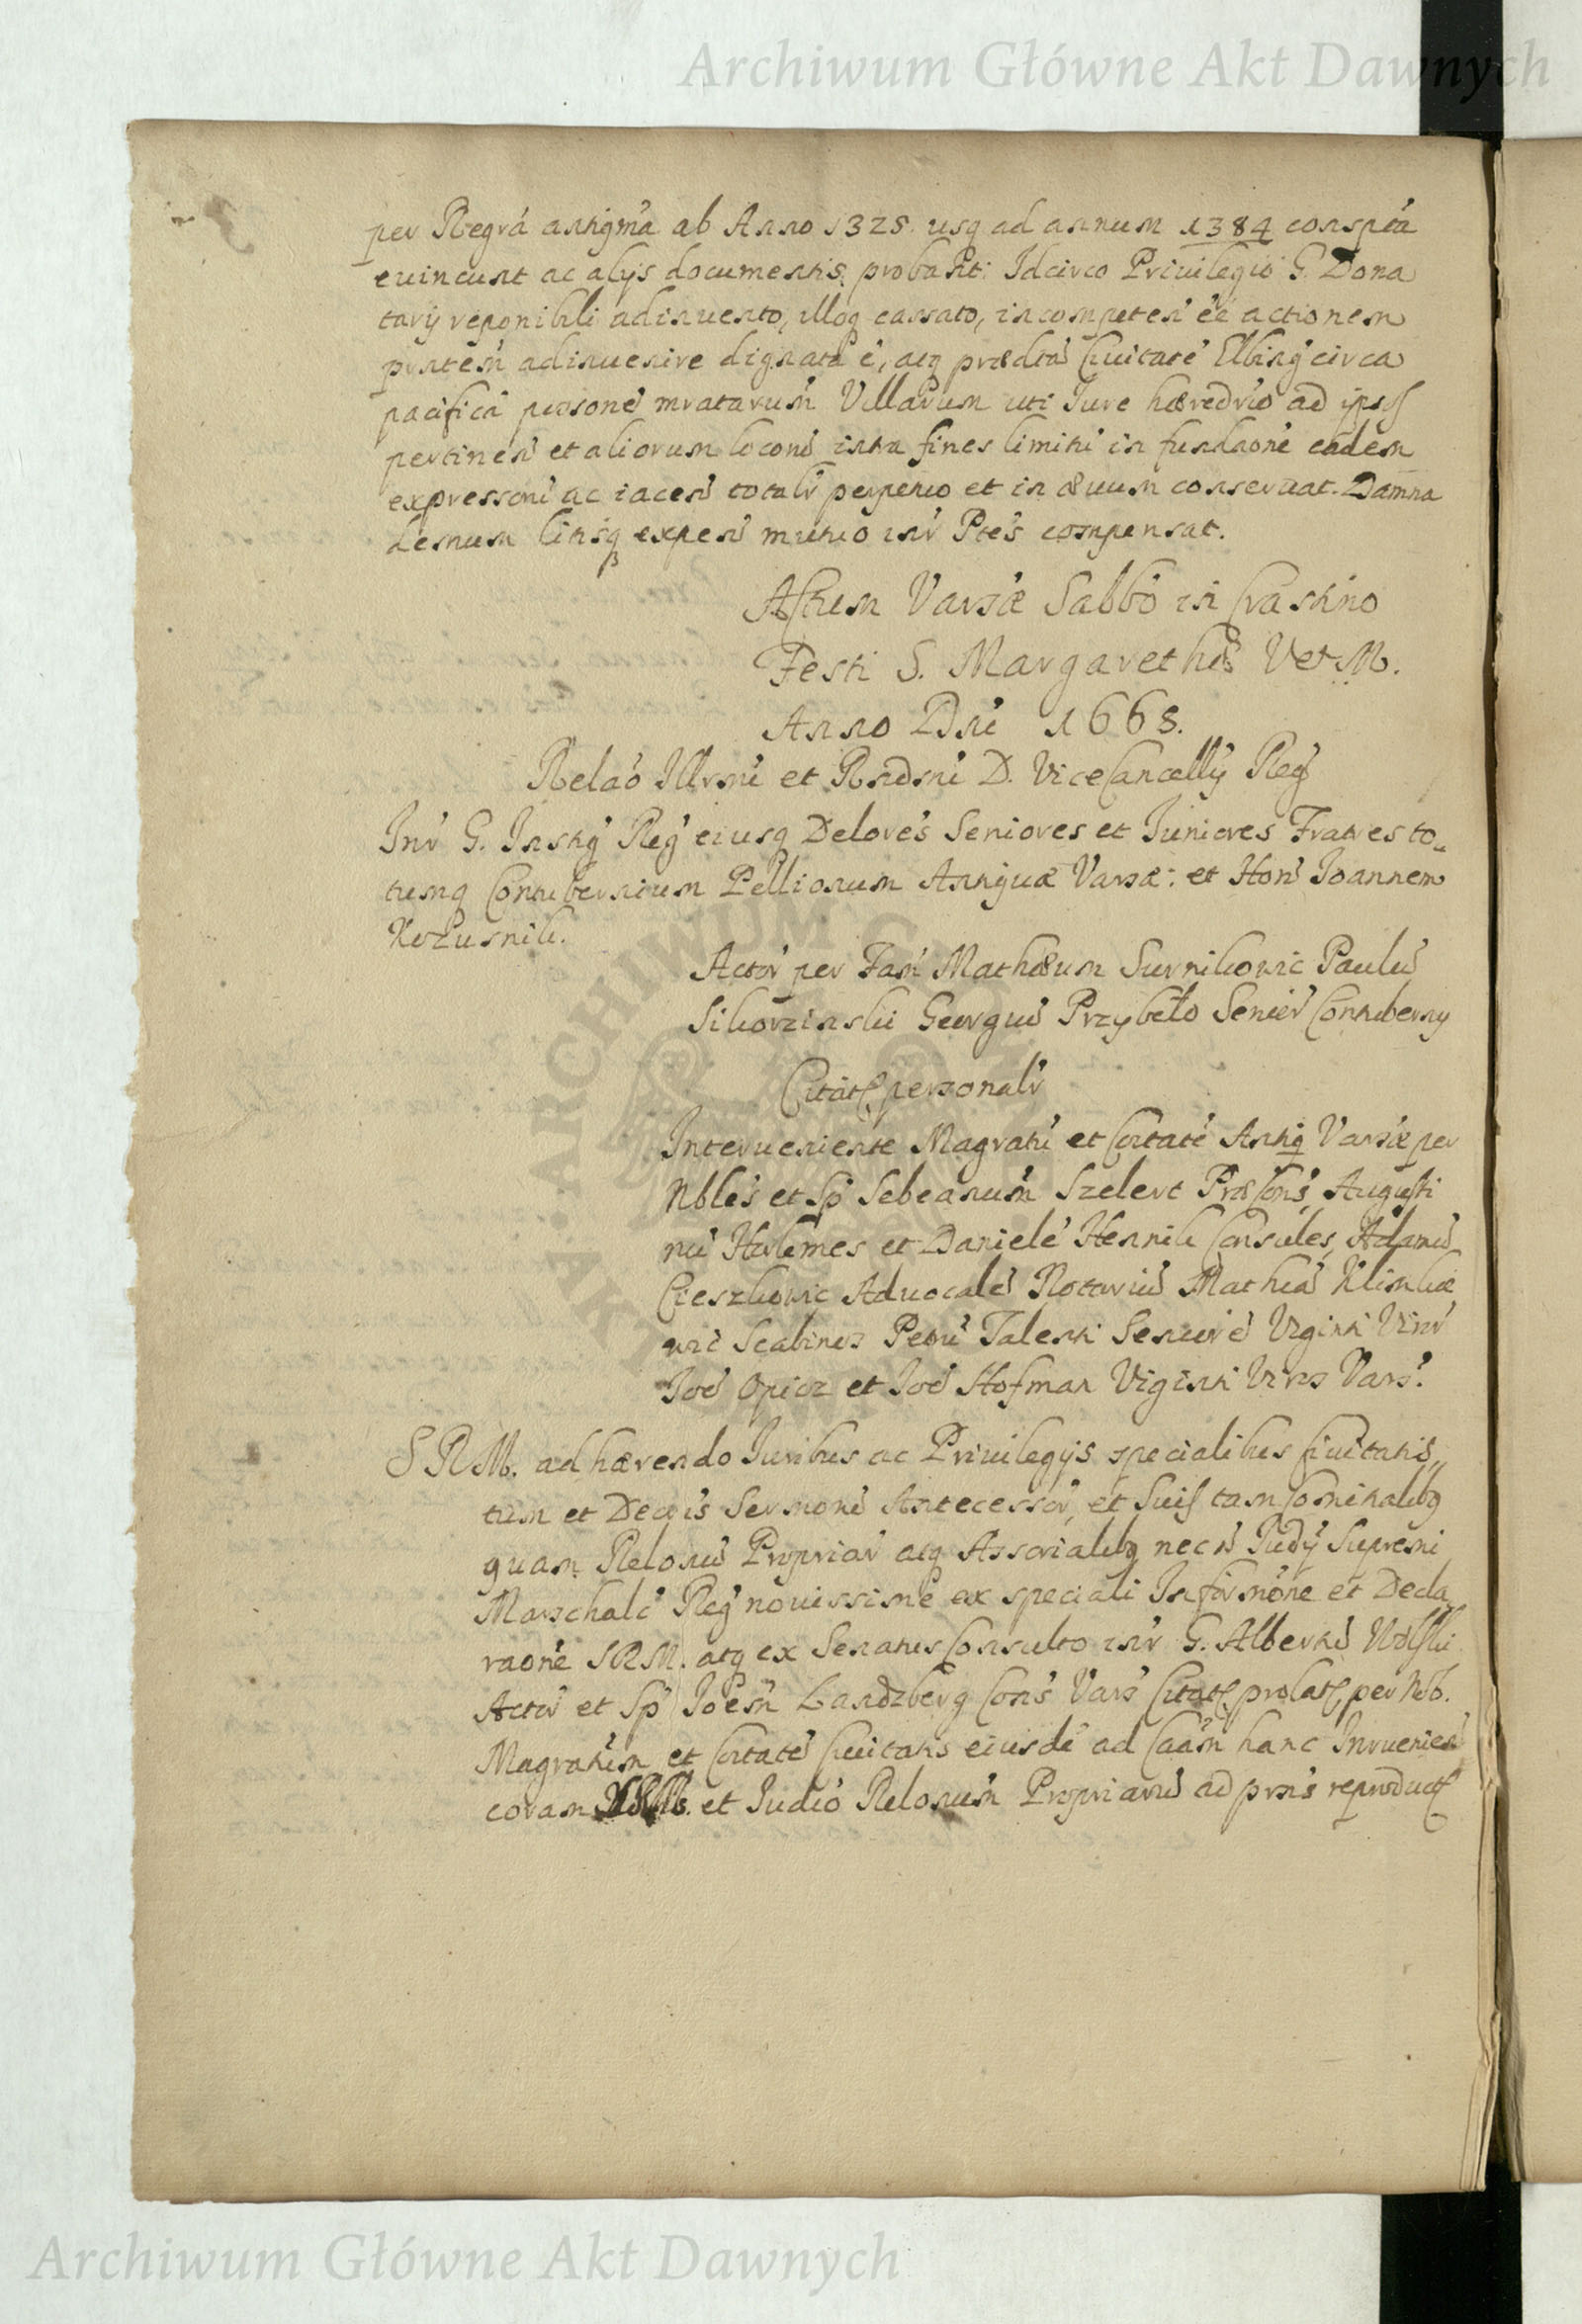 Archiwum Główne Akt Dawnych
per Regrá antiqma ab Anno 1328. usq ad annum 1384 conspta
evincunt ac alys documentis probant: Idcirco Privilegio G. Dona
tarij reponibili adinvento, illoq cassato, incompeten eë actionem
pntem adinvenire dignata ē, atq prædta Civitate Elbing circa
pacifica personē mratarum Villarum uti Iure hæredrio ad ipsos
pertinen et aliorum locorū intra fines limitū in fundaone eadem
expressorū ac iacen totalr perpetuo et in ævum conservat. Damna
demum litisq expens mutuo inr Ptes compensat.
Actum Varsæ Sabbo in Crastino
Festi S. Margarethæ V et M.
Anno Dni 1668.
Relao Illrmi et Rndmi D. ViceCancellÿ Reg
Inr G. Instig Reg eiusq Delores Seniores et Iuniores Fratres to
tumq Contubernium Pellionum Antiquæ Varsæ: et Hon Joannem
Kozusnik.
Actor per Fam Mathæum Surnikowic Paulū
Sikorzinski Georgiū Przybeło Senior Contuberny
Citat personalr
Interveniente Magratu et Coitate Antiq Varsæ per
Nbles et Sp Sebeanum Szelert Præcons, Augusti
nū Hulemes et Daniele Hennik Consules, Adamū
Cieszkowic Advocatū Notariū Mathiā Klimka
wic Scabinos Petrū Talenti Seniore Viginti Virr
Joē Opicz et Joē Hofman Viginti Viros Vars.
S R M. adhærendo Iuribus ac Privilegijs specialibus Civitatis
tum et Decris Sermorū Antecessor, et Suis tam Comitialibq
quam Relonū Propriar atq Assorialibq necn Judÿ Supremi
Marschalc Reg novissime ex speciali Informone et Decla
raone S R M. atq ex Senatus Consulto inr G. Albertū Wolski
Actor et Sp Joem Landzberg Cons Vars Citat prolat, per Nob.
Magratum et Coitatē Civitatis eiusdē ad Caam hanc Invenien
coram et Judio Relonum Propriarū ad pns reproduct
Archiwum Główne Akt Dawnych